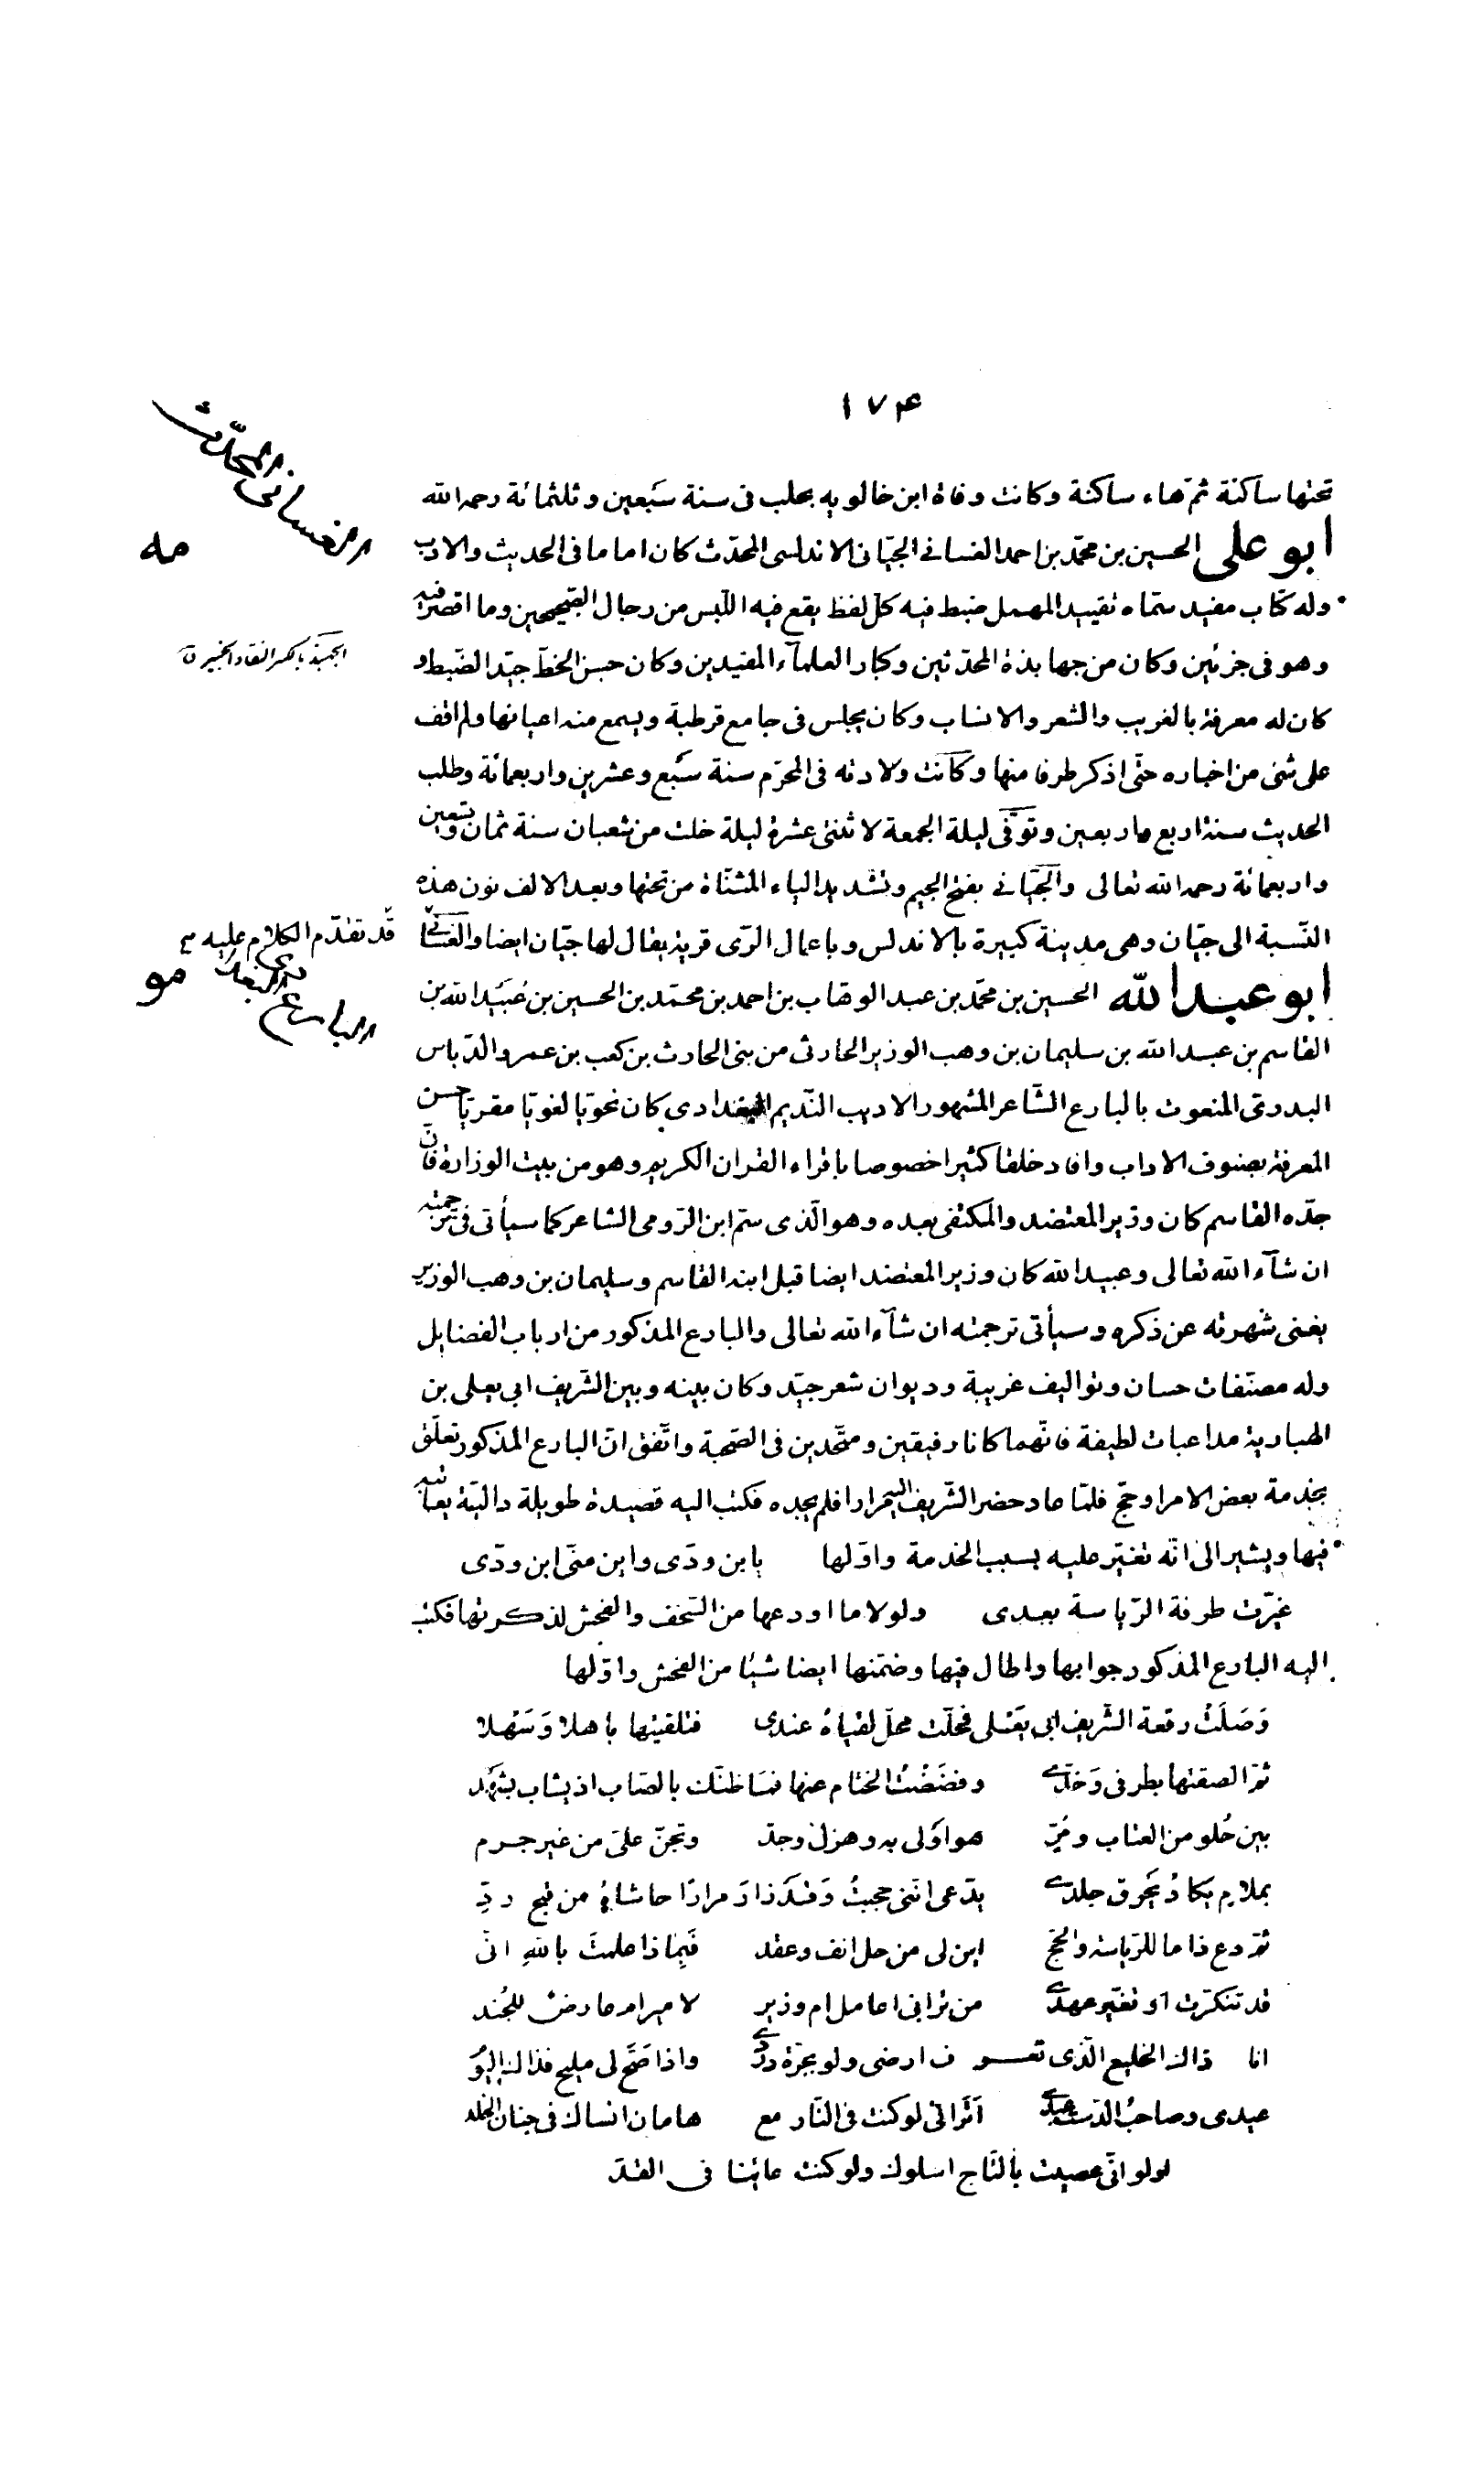 ١٧۴
تحتها ساكنة ثمّ هاء ساكنة وكانت وفاة ابن خالويه بحلب فى سنة سَبعين وثلثمائة رحمه الله
الغسانى المحدّث
مه
ابو على الحسين بن محمّد بن احمد الغسانى الجيّانى الاندلسى المحدّث كان اماما فى الحديث والادب
وله كتاب مفيد سمّاه تقييد المهمل ضبط فيه كلّ لفظ يقع فيه اللّبس من رجال الصّحيحين وما اقصر فيه
وهو فى جزئين وكان من جهابذة المحدّثين وكبار العلمآء المفيدين وكان حسن الخطّ جيّد الضّبط و
الجهبذ بالكسر النقاد الخبير ق
كان له معرفة بالغريب والشعر والانساب وكان يجلس فى جامع قرطبة ويسمع منه اعيانها ولم اقف
على شئ من اخباره حتّى اذكر طرفا منها وكانت ولادته فى المحرّم سنة سَبع وعشرين واربعمائة وطلب
الحديث سنة اربع واربعين وتوفّى ليلة الجمعة لاثنتى عشرة ليلة خلت من شعبان سنة ثمان وتسعين
واربعمائة رحمه الله تعالى والجيّانى بفتح الجيم وتشديد الياء المثنّاة من تحتها وبعد الالف نون هذه
النّسبة الى جيّان وهى مدينة كبيرة بالاندلس وباعمال الرّى قرية يقال لها جيّان ايضا والغسّانىّ
قد تقدّم الكلام عليه
البارع البغدادى
مو
ابو عبد الله الحسين بن محمّد بن عبد الوهّاب بن احمد بن محمّد بن الحسين بن عُبَيد الله بن
القاسم بن عبد الله بن سليمان بن وهب الوزير الحارثى من بنى الحارث بن كعب بن عمرو الدّباس
البدرىّ المنعوت بالبارع الشّاعر المشهور الاديب النّديم البغدادى كان نحويّا لغويّا مقريّا حسن
المعرفة بصنوف الاداب وافاد خلقا كثيرا خصوصا باقراء القران الكريم وهو من بيت الوزارة فانّ
جدّه القاسم كان وزير المعتضد والمكتفى بعده وهو الّذى سمّ ابن الرّومى الشاعر كما سيأتى فى ترجمته
ان شآء الله تعالى وعبيد الله كان وزير المعتضد ايضا قبل ابنه القاسم وسليمان بن وهب الوزير
يغنى شهرته عن ذكره وسيأتى ترجمته ان شآء الله تعالى والبارع المذكور من ارباب الفضايل
وله مصنّفات حسان وتواليف غريبة وديوان شعر جيّد وكان بينه وبين الشّريف ابى يعلى بن
الهبارية مداعبات لطيفة فانّهما كانا رفيقين ومتّحدين فى الصّحبة واتّفق انّ البارع المذكور تعلّق
بخدمة بعض الامرا وحجّ فلمّا عاد حضر الشّريف اليه مرارا فلم يجده فكتب اليه قصيدة طويلة داليّة يعاتبه
فيها ويشير الى انّه تغيّر عليه بسبب الخدمة واوّلها يا ابن ودّى واين منّى ابن ودّى
غيّرت طرفة الرّياسة بعدى ولولا ما اودعها من السّخف والفحش لذكرتها فكتب
اليه البارع المذكور جوابها واطال فيها وضمّنها ايضا شيئا من الفحش واوّلها
وَصَلَتْ رقعة الشّريف ابى يَعْلى فحلّت محلّ لقياهُ عندى فتلقيتها باهلا وَسَهْلا
ثمّ الصقتها بطرفى وَخدّى وفضَضْتُ الختام عنها فمَا ظنّك بالصّاب اذ يشاب بشهد
بين حُلو من العتاب ومُرّ هو اَولى به وهزل وجدّ وتجنّ علىّ من غير جرم
بملام يكادُ يَحرق جلدى يدّعى انّنى حجبتُ وَقدَ زارَ مرارًا حاشاهُ من قبح ردِّ
ثمّ دع ذا ما للرّياسة والحجّ ابن لى من حل انف وعقد فَبِماذا علمتَ باللهِ انّى
قد تنكرّت او تغيّر عهدى من ترانى اعامل ام وزير لا ميرام عارض للجُند
انا ذاك الخليع الّذى تعرف ارضى ولو بجرّة دردى واذا صَحّ لى مليح فذاك اليَوم
عيدى وصاحبُ الدّست عبدى اَتَرانى لو كنت فى النّار مع هامان انساك فى جنان الخلد
او لو انّى عصبت بالتّاج اسلوك ولو كنت عائيا فى القدّ